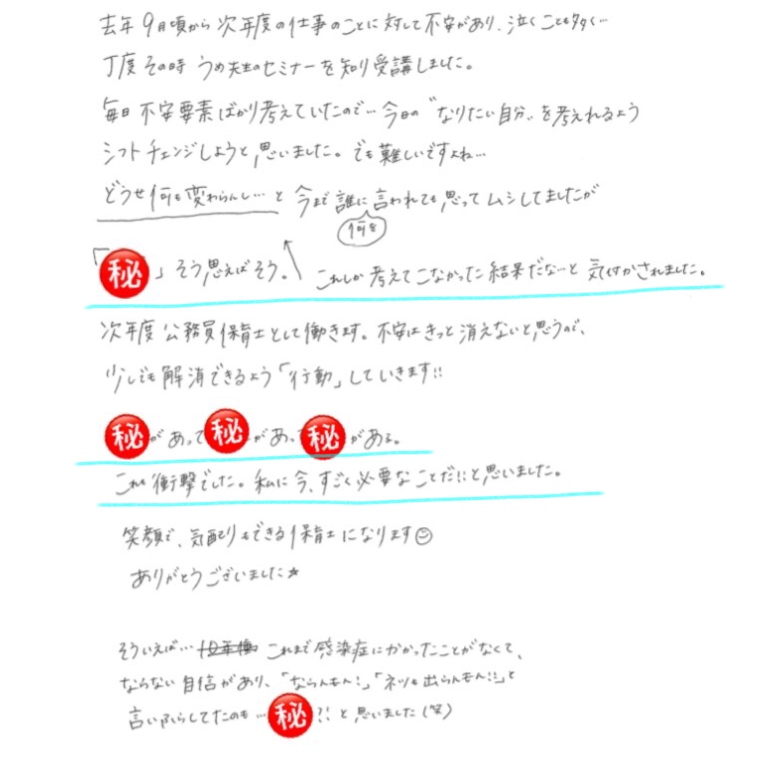 去年9月頃から次年度の仕事のことに対して不安があり、泣くことも多く…
丁度その時 うめ先生のセミナーを知り受講しました。
毎日不安要素ばかり考えていたので…今日の"なりたい自分"を考えれるよう
シフトチェンジしようと思いました。でも難しいですよね…
どうせ何も変わらんし…と今まで誰に言われても思ってムシしてましたが
何を
「㊙」そう思えばそう。これしか考えてこなかった結果だな…と気付かされました。
次年度公務員保育士として働きます。不安はきっと消えないと思うので、
少しでも解消できるよう「行動」していきます!!
㊙があって㊙があって㊙がある。
これも衝撃でした。私に今、すごく必要なことだ!!と思いました。
笑顔で、気配りもできる保育士になります☺
ありがとうございました★
そういえば… これまで感染症にかかったことがなくて、
ならない自信があり、「ならんもん!」「ネツも出らんもん!!」と
言いふらしてたのも…㊙?!と思いました(笑)